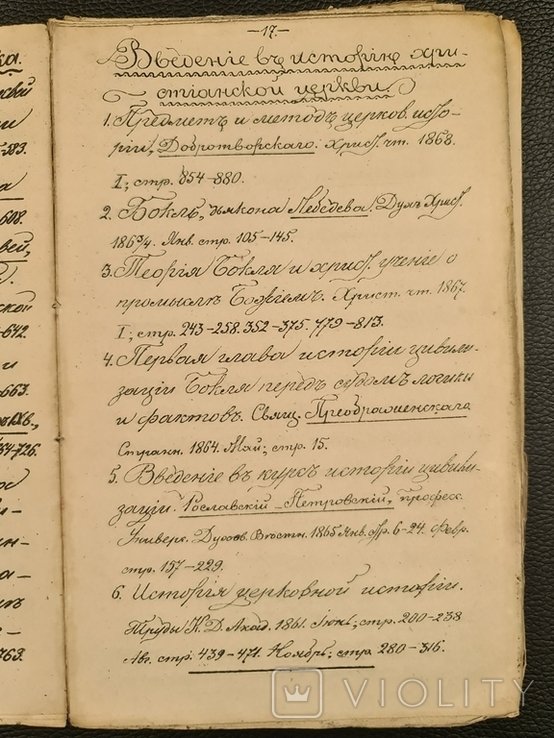 ка.
583.
608.
вей,
ской
642.
и
663.
726.
ин-
763.
—17.—
Введеніе въ исторію хри-
стіанской церкви.
1. Предметъ и методъ церков. исто-
ріи, Добротворскаго. Христ. чт. 1868.
I; стр. 854–880.
2. Бокль, дьякона Лебедева. Душ. Христ.
186¾. Янв. стр. 105–145.
3. Теорія Бокля и христ. ученіе о
промыслѣ Божіемъ. Христ. чт. 1867.
I; стр. 243–258. 352–375. 779–813.
4. Первая глава исторіи цивили-
заціи Бокля передъ судомъ логики
и фактовъ. Свящ. Преображенскаго
Странн. 1864. Май; стр. 15.
5. Введеніе въ курсъ исторіи цивили-
заціи. Рославскій–Петровскій, профес.
Универс. Духовн. Вѣстн. 1865 Янв. стр. 6–24. Февр.
стр. 157–229.
6. Исторія церковной исторіи.
Труды К. Д. Акад. 1861. Іюнь; стр. 200–238
Авг. стр. 439–471. Ноябрь; стр. 280–316.
VIOLITY